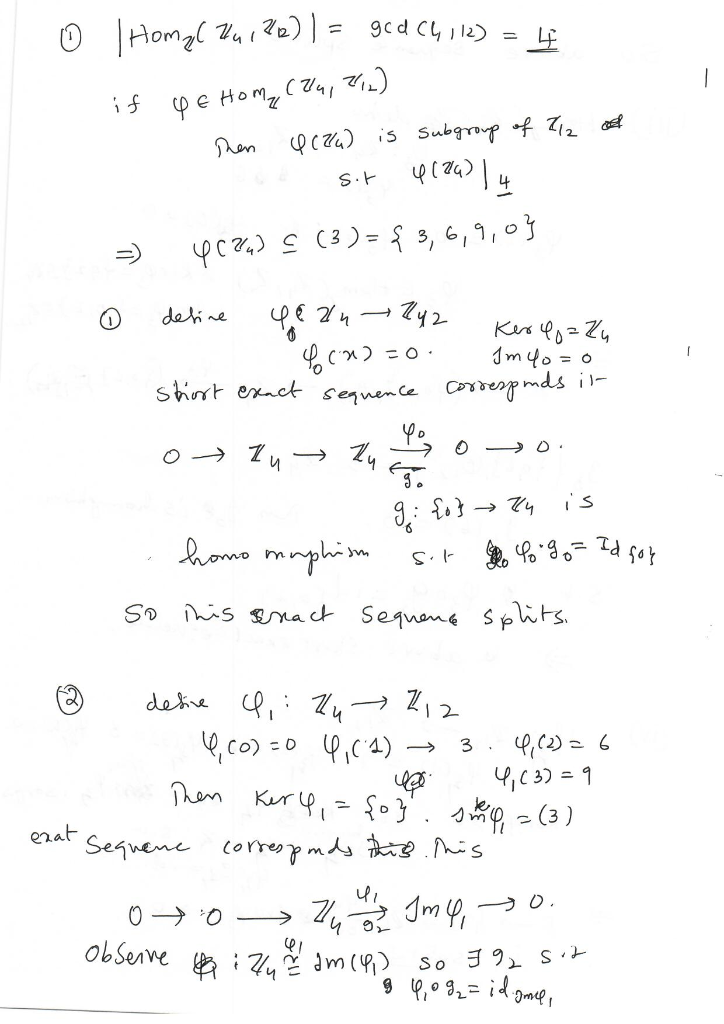 ① |Hom_ℤ(ℤ₄, ℤ₁₂)| = gcd(4,12) = 4
if φ ∈ Hom_ℤ(ℤ₄, ℤ₁₂)
Then φ(ℤ₄) is subgroup of ℤ₁₂
s.t φ(ℤ₄) | 4
⇒ φ(ℤ₄) ⊆ (3) = {3, 6, 9, 0}
① define φ₀ ℤ₄ → ℤ₁₂ Ker φ₀ = ℤ₄
φ₀(x) = 0. Im φ₀ = 0
Short exact sequence correspnds is
0 → ℤ₄ → ℤ₄ ⇄ 0 → 0. φ₀ g₀
g₀: {0} → ℤ₄ is
homo morphism s.t φ₀·g₀ = Id {0}
So This exact Sequence splits.
② define φ₁ : ℤ₄ → ℤ₁₂
φ₁(0) = 0 φ₁(1) → 3. φ₁(2) = 6
φ₁(3) = 9
Then Ker φ₁ = {0}. Im φ₁ = (3)
exat Sequenc correspnds This
0 → 0 → ℤ₄ ⇄ Im φ₁ → 0. φ₁ g₂
Observe : ℤ₄ ≅ Im(φ₁) so ∃ g₂ s.t
φ₁∘g₂ = id Imφ₁